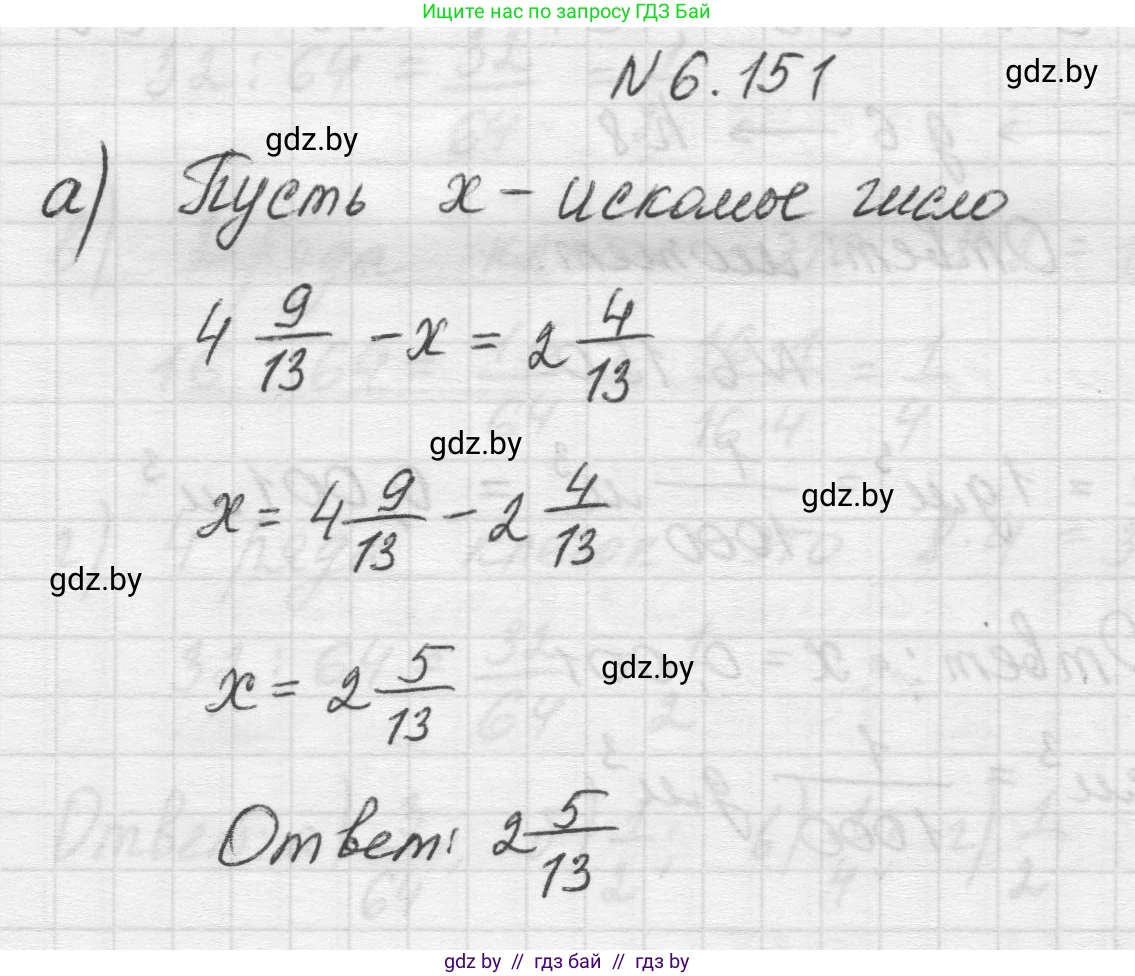 Ищите нас по запросу ГДЗ Бай
N 6.151
gdz.by
gdz.by
а) Пусть x – искомое число
4 9/13 - x = 2 4/13
gdz.by
x = 4 9/13 - 2 4/13
gdz.by
gdz.by
x = 2 5/13
gdz.by
Ответ: 2 5/13
gdz by // гдз бай // гдз by